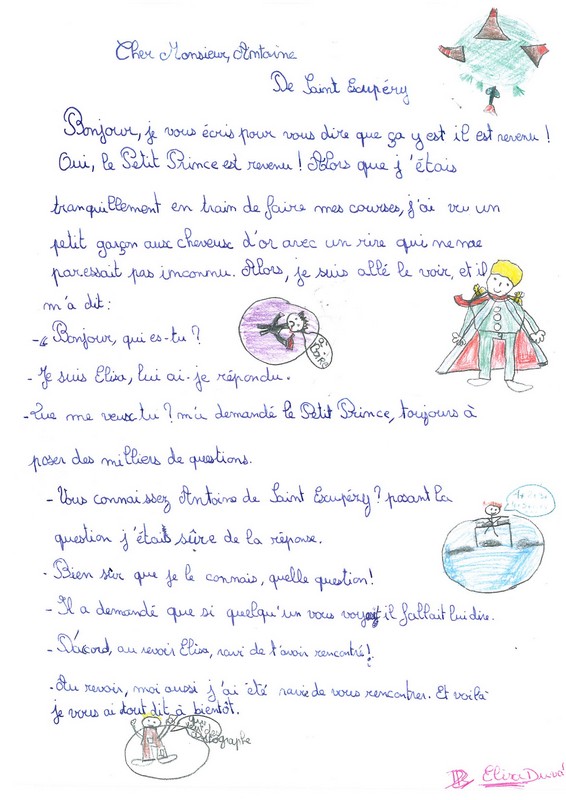 Cher Monsieur, Antoine
De Saint Exupéry
Bonjour, je vous écris pour vous dire que ça y est il est revenu !
Oui, le Petit Prince est revenu ! Alors que j'étais
tranquillement en train de faire mes courses, j'ai vu un
petit garçon aux cheveux d'or avec un rire qui ne me
paressait pas inconnu. Alors, je suis allé le voir, et il
m'a dit :
- Bonjour, qui es-tu ?
- Je suis Elisa, lui ai-je répondu.
- Que me veux-tu ? m'a demandé le Petit Prince, toujours à
poser des milliers de questions.
- Vous connaissez Antoine de Saint Exupéry ? posant la
question j'étais sûre de la réponse.
- Bien sûr que je le connais, quelle question !
- Il a demandé que si quelqu'un vous voyait il fallait lui dire.
- D'acord, au revoir Elisa, ravi de t'avoir rencontré !
- Au revoir, moi aussi j'ai été ravie de vous rencontrer. Et voilà
je vous ai tout dit, à bientôt.
Elisa Duval